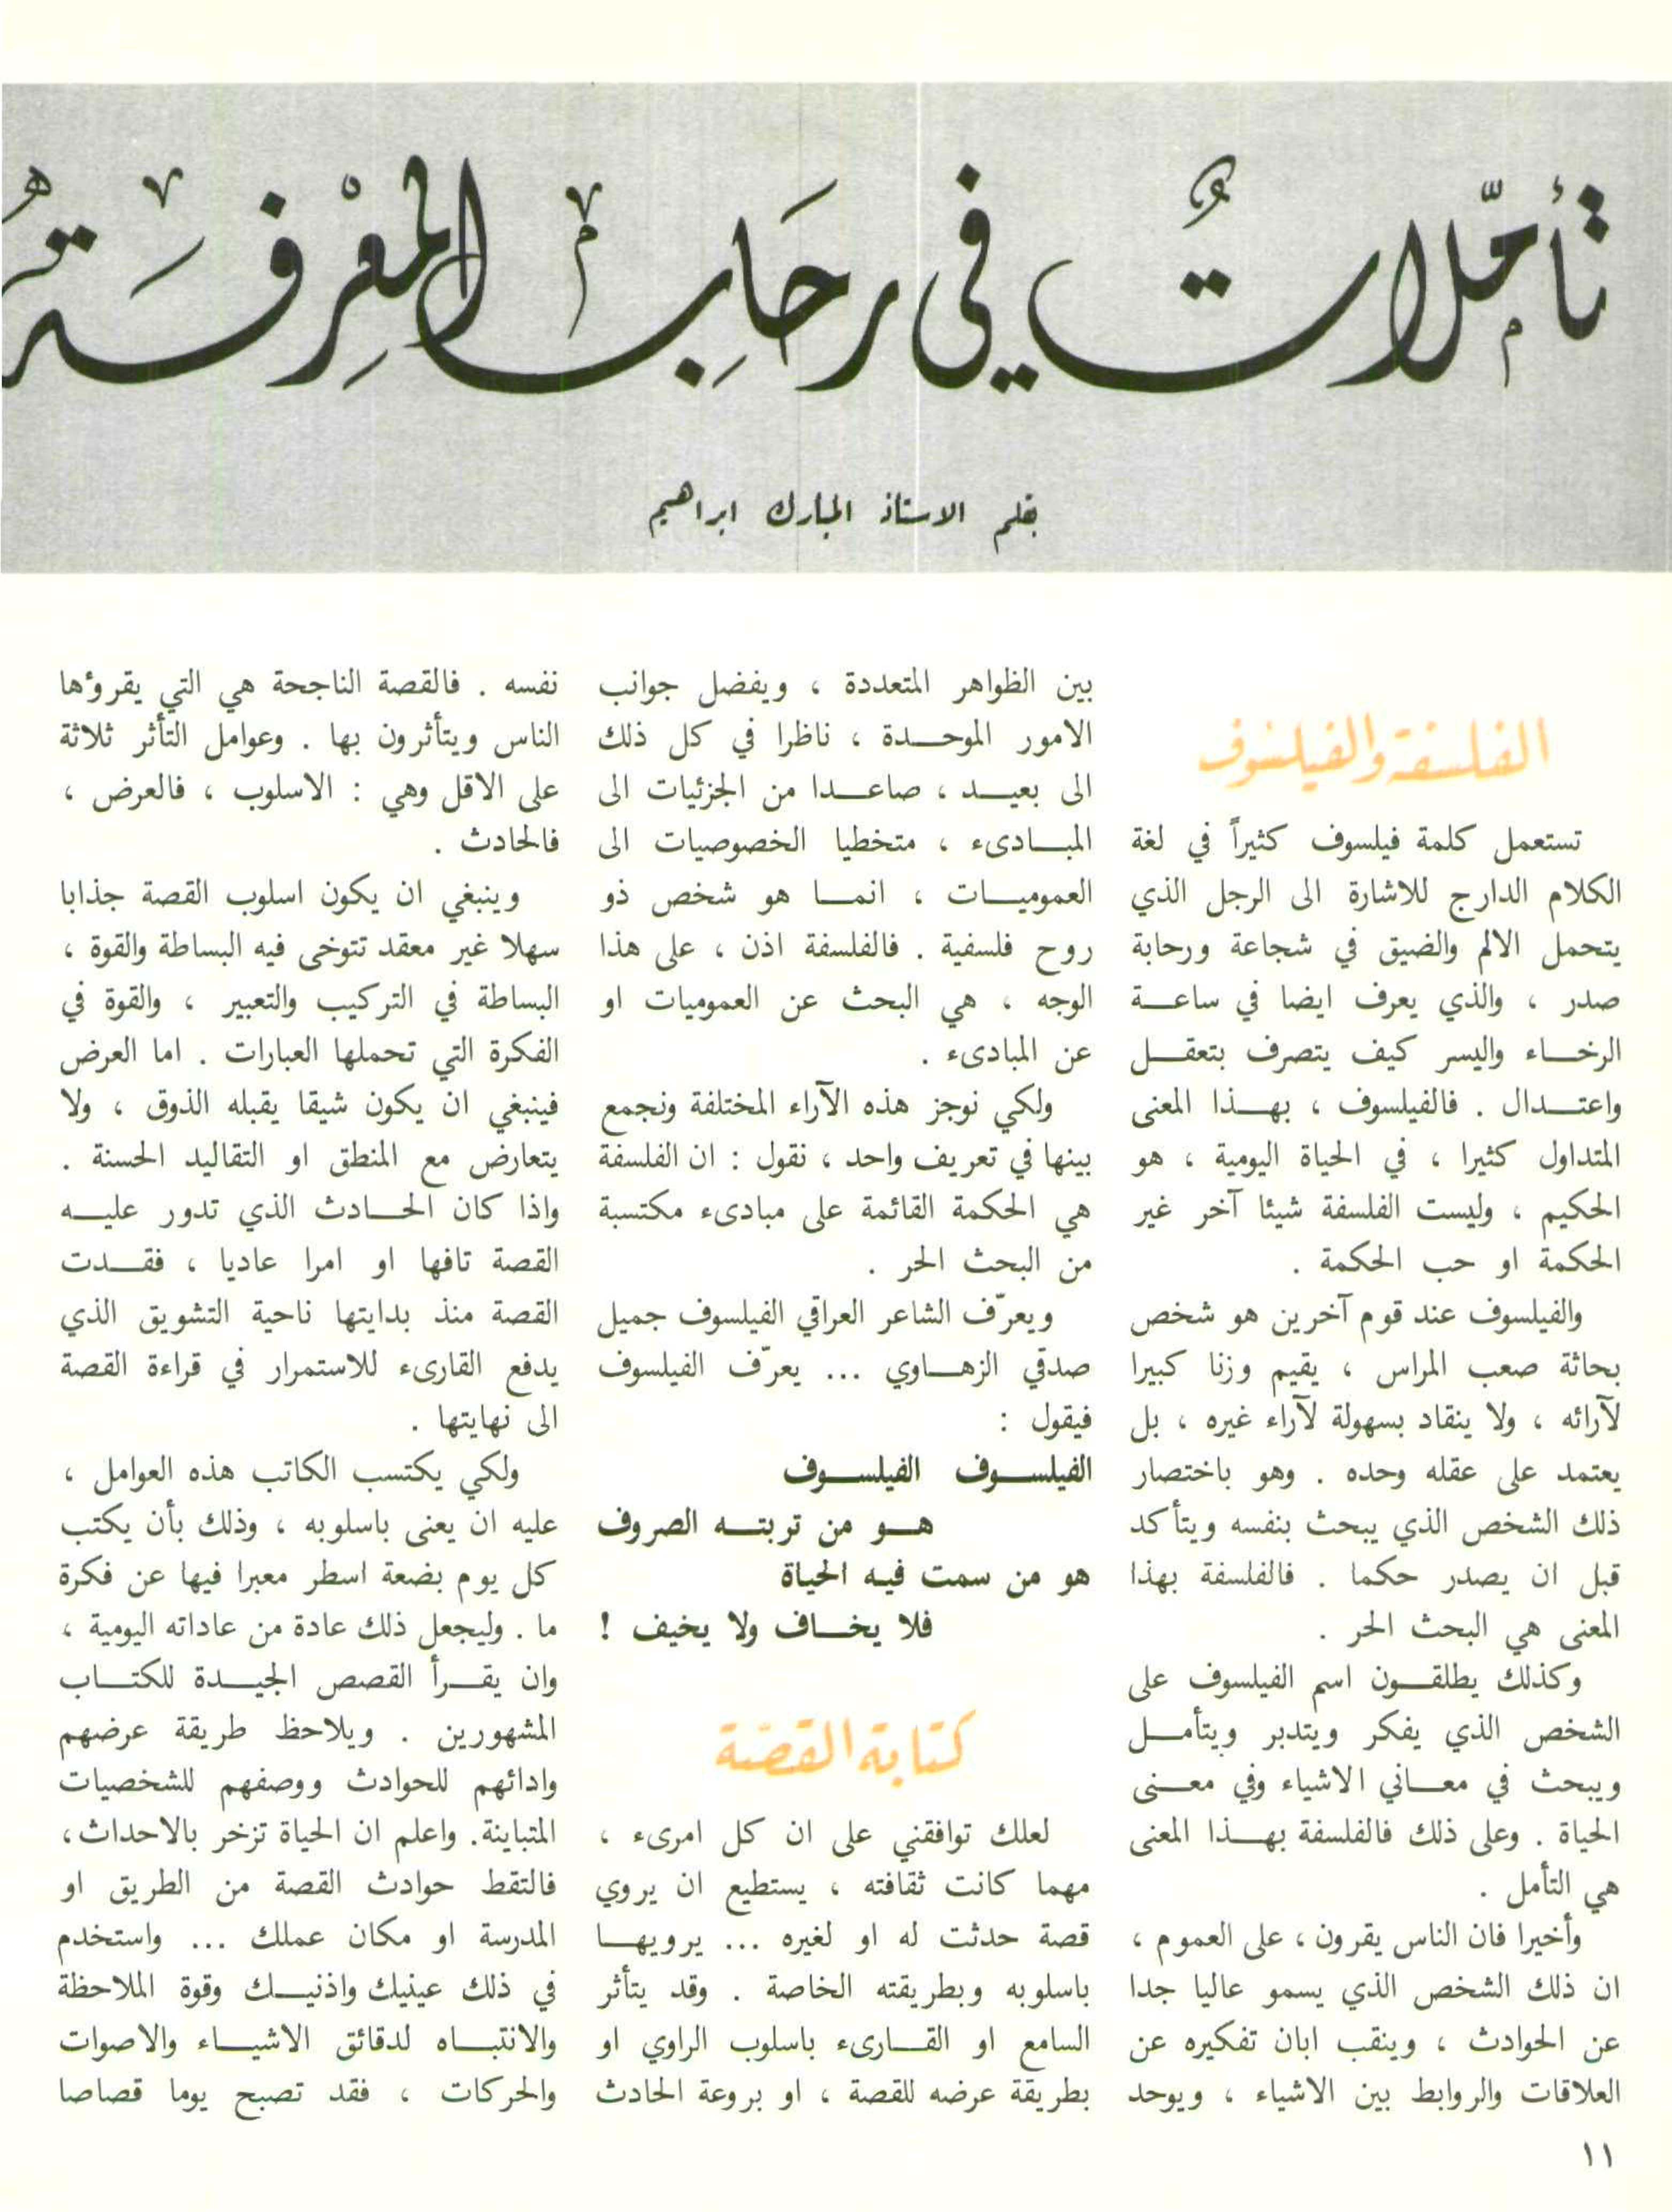 تأمّلاتٌ في رحَابِ المعْرِفَةِ
بقلم الاستاذ المبارك ابراهيم
الفلسفة والفيلسوف
تستعمل كلمة فيلسوف كثيراً في لغة
الكلام الدارج للاشارة الى الرجل الذي
يتحمل الالم والضيق في شجاعة ورحابة
صدر ، والذي يعرف ايضا في ساعـــة
الرخـــاء واليسر كيف يتصرف بتعقـــل
واعتـــدال . فالفيلسوف ، بهـــذا المعنى
المتداول كثيرا ، في الحياة اليومية ، هو
الحكيم ، وليست الفلسفة شيئا آخر غير
الحكمة او حب الحكمة .
والفيلسوف عند قوم آخرين هو شخص
بحاثة صعب المراس ، يقيم وزنا كبيرا
لآرائه ، ولا ينقاد بسهولة لآراء غيره ، بل
يعتمد على عقله وحده . وهو باختصار
ذلك الشخص الذي يبحث بنفسه ويتأكد
قبل ان يصدر حكما . فالفلسفة بهذا
المعنى هي البحث الحر .
وكذلك يطلقـــون اسم الفيلسوف على
الشخص الذي يفكر ويتدبر ويتأمـــل
ويبحث في معـــاني الاشياء وفي معـــنى
الحياة . وعلى ذلك فالفلسفة بهـــذا المعنى
هي التأمل .
وأخيرا فان الناس يقرون ، على العموم ،
ان ذلك الشخص الذي يسمو عاليا جدا
عن الحوادث ، وينقب ابان تفكيره عن
العلاقات والروابط بين الاشياء ، ويوحد
بين الظواهر المتعددة ، ويفضل جوانب
الامور الموحـــدة ، ناظرا في كل ذلك
الى بعيـــد ، صاعـــدا من الجزئيات الى
المبـــادىء ، متخطيا الخصوصيات الى
العموميـــات ، انمـــا هو شخص ذو
روح فلسفية . فالفلسفة اذن ، على هذا
الوجه ، هي البحث عن العموميات او
عن المبادىء .
ولكي نوجز هذه الآراء المختلفة ونجمع
بينها في تعريف واحد ، نقول : ان الفلسفة
هي الحكمة القائمة على مبادىء مكتسبة
من البحث الحر .
ويعرّف الشاعر العراقي الفيلسوف جميل
صدقي الزهـــاوي ... يعرّف الفيلسوف
فيقول :
الفيلســـوف الفيلســـوف
هـــو من تربتـــه الصروف
هو من سمت فيـه الحياة
فلا يخـــاف ولا يخيف !
كتابة القصّة
لعلك توافقني على ان كل امرىء ،
مهما كانت ثقافته ، يستطيع ان يروي
قصة حدثت له او لغيره ... يرويهـــا
باسلوبه وبطريقته الخاصة . وقد يتأثر
السامع او القـــارىء باسلوب الراوي او
بطريقة عرضه للقصة ، او بروعة الحادث
نفسه . فالقصة الناجحة هي التي يقروءها
الناس ويتأثرون بها . وعوامل التأثر ثلاثة
على الاقل وهي : الاسلوب ، فالعرض ،
فالحادث .
وينبغي ان يكون اسلوب القصة جذابا
سهلا غير معقد تتوخى فيه البساطة والقوة ،
البساطة في التركيب والتعبير ، والقوة في
الفكرة التي تحملها العبارات . اما العرض
فينبغي ان يكون شيقا يقبله الذوق ، ولا
يتعارض مع المنطق او التقاليد الحسنة .
واذا كان الحـــادث الذي تدور عليـــه
القصة تافها او امرا عاديا ، فقـــدت
القصة منذ بدايتها ناحية التشويق الذي
يدفع القارىء للاستمرار في قراءة القصة
الى نهايتها .
ولكي يكتسب الكاتب هذه العوامل ،
عليه ان يعنى باسلوبه ، وذلك بأن يكتب
كل يوم بضعة اسطر معبرا فيها عن فكرة
ما . وليجعل ذلك عادة من عاداته اليومية ،
وان يقـــرأ القصص الجيـــدة للكتـــاب
المشهورين . ويلاحظ طريقة عرضهم
وادائهم للحوادث ووصفهم للشخصيات
المتباينة. واعلم ان الحياة تزخر بالاحداث،
فالتقط حوادث القصة من الطريق او
المدرسة او مكان عملك ... واستخدم
في ذلك عينيك واذنيـــك وقوة الملاحظة
والانتبـــاه لدقائق الاشيـــاء والاصوات
والحركات ، فقد تصبح يوما قصاصا
١١